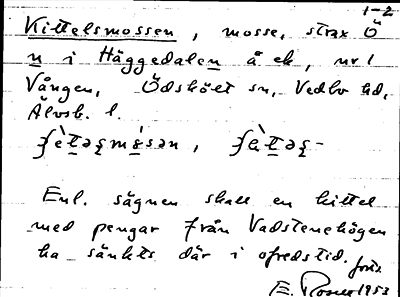 1-2
Kittelsmossen, mosse, strax Ö
n i Häggedalen å ek, nr 1
Vången, Ödskölt sn, Vedbo hd,
Älvsb. l.
Enl. sägnen skall en kittel
med pengar från Vadstenehögen
ha sänkts där i ofredstid.
forts
E. Rosell 1953